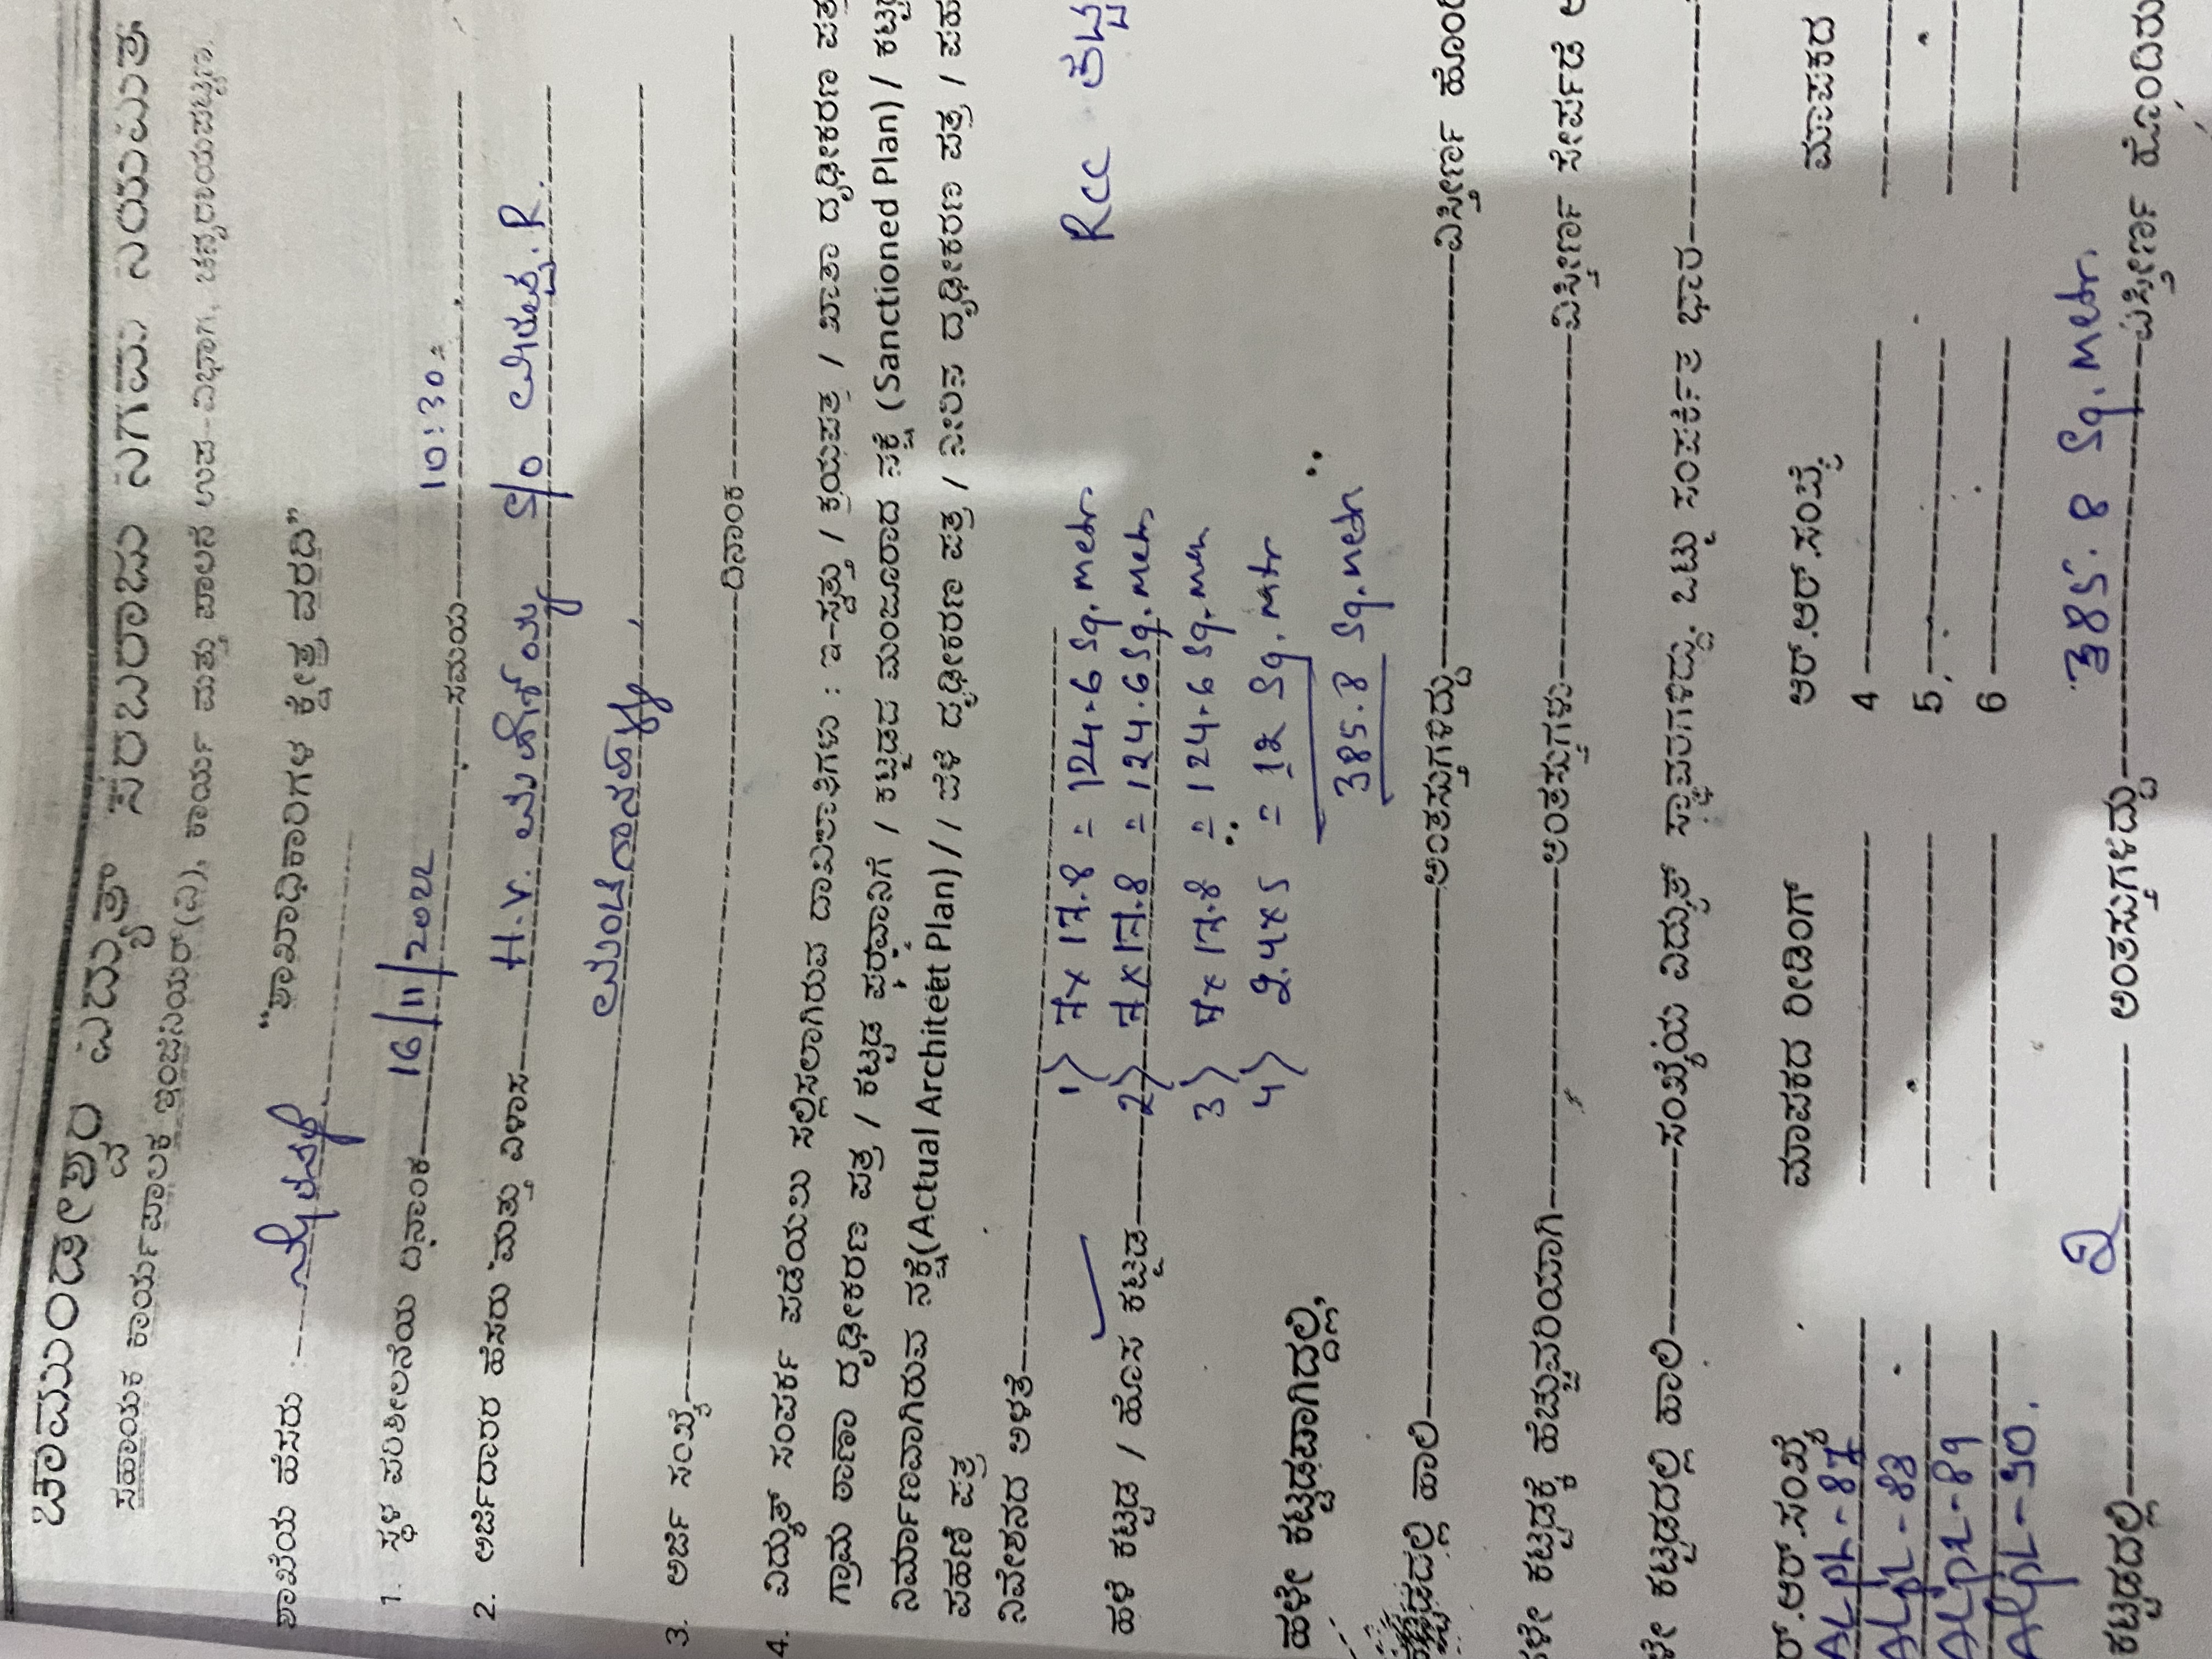 ಚಾಮುಂಡೇಶ್ವರಿ ವಿದ್ಯುತ್ ಸರಬರಾಜು ನಿಗಮ ನಿಯಮಿತ
ಸಹಾಯಕ ಕಾರ್ಯಪಾಲಕ ಇಂಜಿನಿಯರ್(ವಿ), ಕಾರ್ಯ ಮತ್ತು ಪಾಲನೆ ಉಪ-ವಿಭಾಗ, ಚನ್ನರಾಯಪಟ್ಟಣ.
"ಶಾಖಾಧಿಕಾರಿಗಳ ಕ್ಷೇತ್ರ ವರದಿ"
ಶಾಖೆಯ ಹೆಸರು :
1. ಸ್ಥಳ ಪರಿಶೀಲನೆಯ ದಿನಾಂಕ 16/11/2022 ಸಮಯ 10:30
2. ಅರ್ಜಿದಾರರ ಹೆಸರು ಮತ್ತು ವಿಳಾಸ H.V. S/o R.
3. ಅರ್ಜಿ ಸಂಖ್ಯೆ ದಿನಾಂಕ
4. ವಿದ್ಯುತ್ ಸಂಪರ್ಕ ಪಡೆಯಲು ಸಲ್ಲಿಸಲಾಗಿರುವ ದಾಖಲಾತಿಗಳು : ಇ-ಸ್ವತ್ತು / ಕ್ರಯಪತ್ರ / ಖಾತಾ ದೃಢೀಕರಣ ಪತ್ರ
ಗ್ರಾಮ ಠಾಣಾ ದೃಢೀಕರಣ ಪತ್ರ / ಕಟ್ಟಡ ಪರವಾನಿಗೆ / ಕಟ್ಟಡದ ಮಂಜೂರಾದ ನಕ್ಷೆ (Sanctioned Plan) / ಕಟ್ಟ
ನಿರ್ಮಾಣವಾಗಿರುವ ನಕ್ಷೆ(Actual Architect Plan) / ವೆಳೆ ದೃಢೀಕರಣ ಪತ್ರ / ನೀರಿನ ದೃಢೀಕರಣ ಪತ್ರ / ಪಹ
ಪಹಣಿ ಪತ್ರ
ನಿವೇಶನದ ಅಳತೆ
1) 7x 17.8 = 124.6 Sq. metr.
ಹಳೆ ಕಟ್ಟಡ / ಹೊಸ ಕಟ್ಟಡ 2) 7x17.8 = 124.6 Sq. metr. RCC
3) 7x 17.8 = 124.6 Sq. metr
4) 2.4x5 = 12 Sq. mtr
385.8 Sq. metr
ಹಳೇ ಕಟ್ಟಡವಾಗಿದ್ದಲ್ಲಿ,
ಕಟ್ಟಡದಲ್ಲಿ ಹಾಲಿ ಅಂತಸ್ತುಗಳಿದ್ದು ವಿಸ್ತೀರ್ಣ ಹೊಂದಿ
ಳೇ ಕಟ್ಟಡಕ್ಕೆ ಹೆಚ್ಚುವರಿಯಾಗಿ ಅಂತಸ್ತುಗಳು ವಿಸ್ತೀರ್ಣ ಸೇರ್ಪಡೆ
ಳೇ ಕಟ್ಟಡದಲ್ಲಿ ಹಾಲಿ ಸಂಖ್ಯೆಯ ವಿದ್ಯುತ್ ಸ್ಥಾವರಗಳಿದ್ದು, ಒಟ್ಟು ಸಂಪರ್ಕಿತ ಭಾರ
ರ್.ಆರ್.ಸಂಖ್ಯೆ ಮಾಪಕದ ರೀಡಿಂಗ್ ಆರ್.ಆರ್.ಸಂಖ್ಯೆ ಮಾಪಕದ
ALPL-87 4
ALPL-88 5
ALPL-89 6
ALPL-90.
ಕಟ್ಟಡದಲ್ಲಿ 2 ಅಂತಸ್ತುಗಳಿದ್ದು 385.8 Sq. metr. ವಿಸ್ತೀರ್ಣ ಹೊಂದಿರು